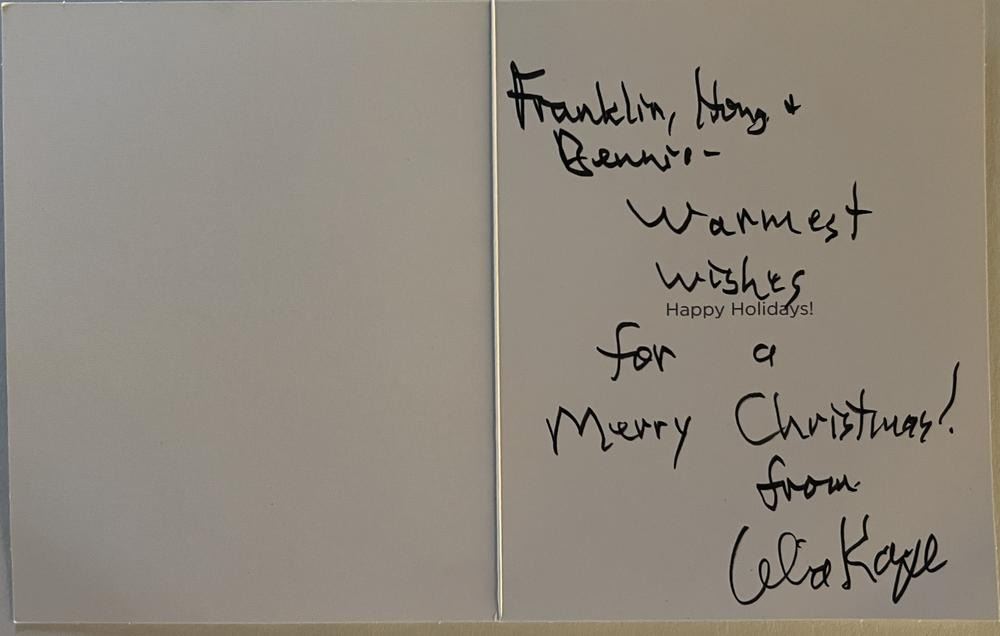 Franklin, Hong +
Bennie -
Warmest
wishes
Happy Holidays!
for a
Merry Christmas!
from
Celia Kaye